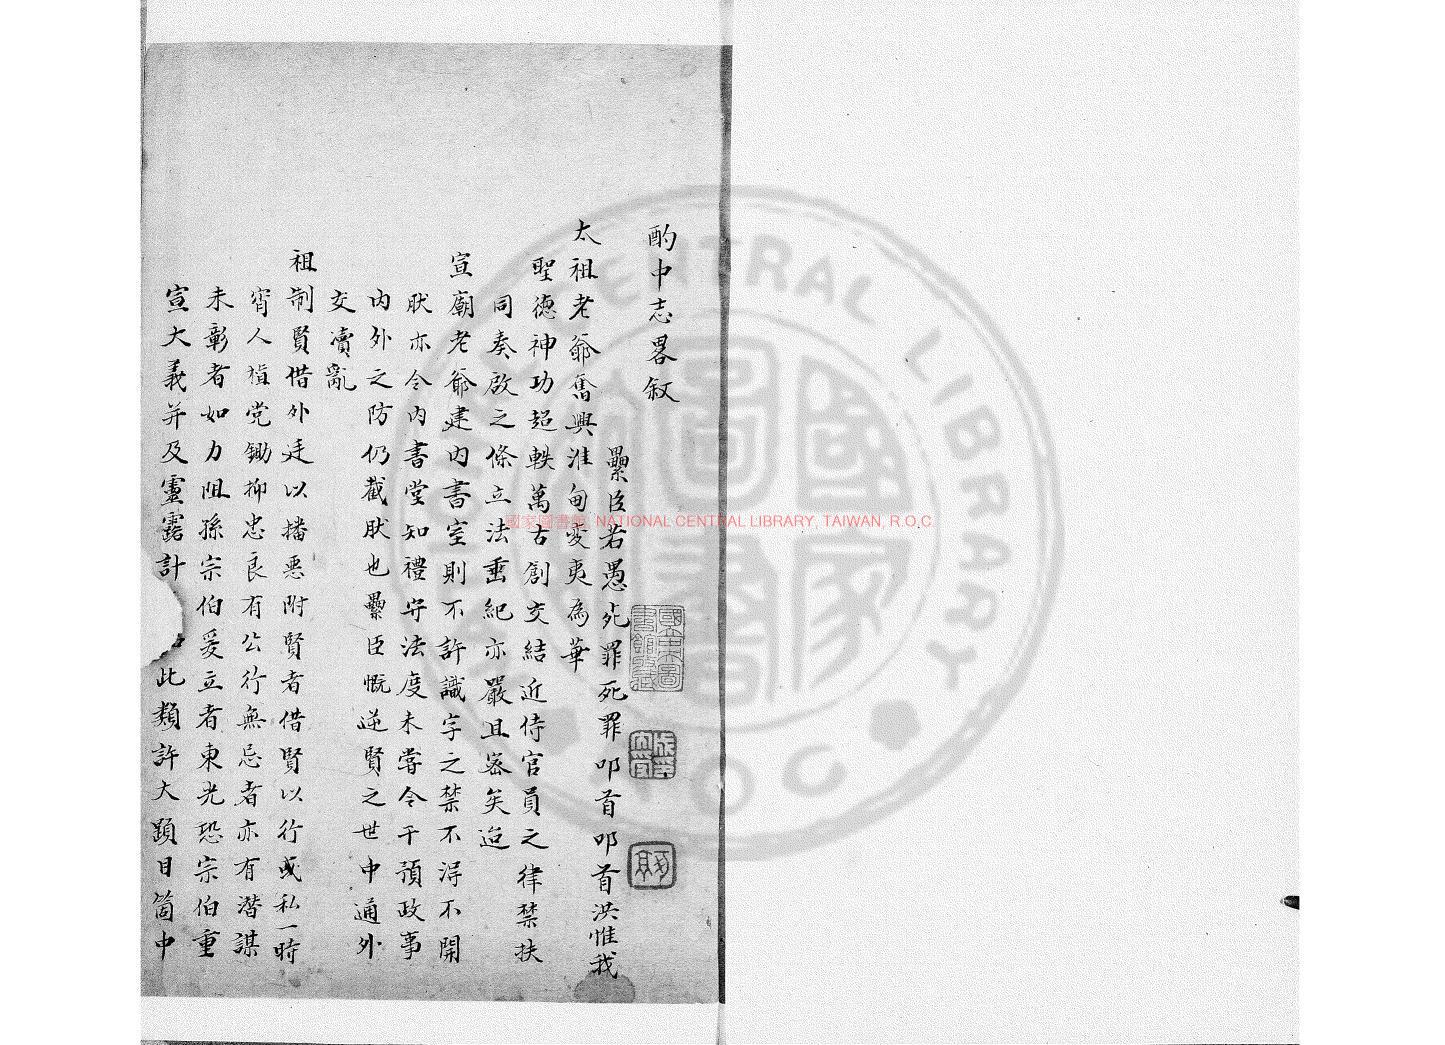 酌中志畧叙
纍臣若愚死罪死罪叩首叩首洪惟我
太祖老爺奮興淮甸變夷為華
聖德神功超軼萬古創交結近侍官員之律禁扶
同奏啟之條立法垂紀亦嚴且宻矣迨
宣廟老爺建內書室則不許識字之禁不得不開
肰亦令內書堂知禮守法度未嘗令干預政事
內外之防仍截肰也纍臣慨逆賢之世中通外
交瀆亂
祖制賢借外廷以播惡附賢者借賢以行或私一時
宵人植党鋤抑忠良有公行無忌者亦有潛謀
未彰者如力阻孫宗伯爰立者東光恐宗伯重
宣大義并及靈露計
此類許大題目箇中
國立中央圖書館收藏
國家圖書館 NATIONAL CENTRAL LIBRARY, TAIWAN, R.O.C
國家圖書館
NATIONAL CENTRAL LIBRARY
R.O.C